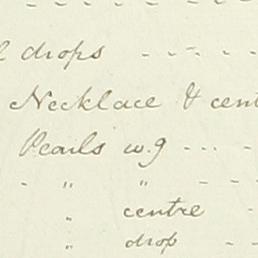 drops - - - -
Necklace & cent
Pearls w.g - - - -
- " " - - -
" centre -
" drop - -